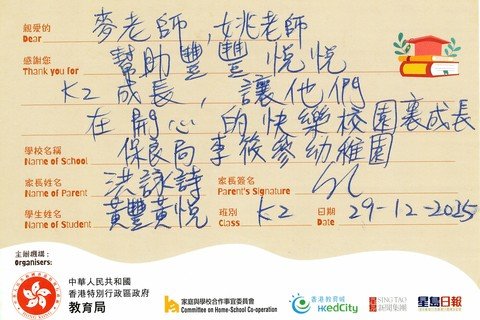 親愛的 麥老師,姚老師
Dear
感謝您 幫助豐豐悅悅
Thank you for
K2 成長,讓他們
在開心的快樂校園裏成長
學校名稱 保良局李筱參幼稚園
Name of School
家長姓名 洪詠詩 家長簽名
Name of Parent Parent's Signature
學生姓名 黃豐黃悅 班別 K2 日期 29-12-2025
Name of Student Class Date
主辦機構:
Organisers:
中華人民共和國
香港特別行政區政府
教育局
家庭與學校合作事宜委員會
Committee on Home-School Co-operation
香港教育城
HKedCity
星島 SING TAO
新聞集團
星島日報